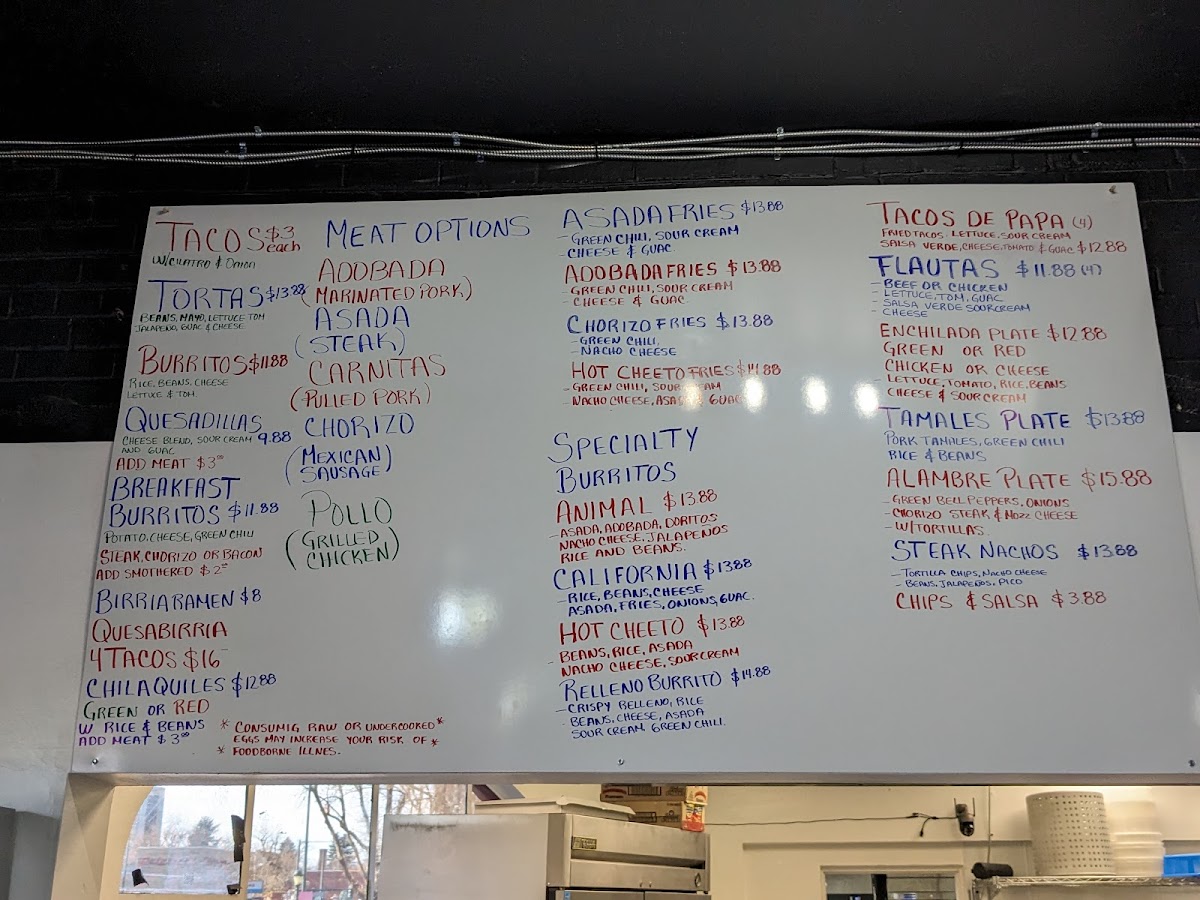 TACOS $3 each
W/CILATRO & ONION
TORTAS $13.88
BEANS, MAYO, LETTUCE TOM
JALAPEÑO, GUAC & CHEESE
BURRITOS $11.88
RICE, BEANS, CHEESE
LETTUCE & TOM
QUESADILLAS
CHEESE BLEND, SOUR CREAM 9.88
AND GUAC
ADD MEAT $3.00
BREAKFAST
BURRITOS $11.88
POTATO, CHEESE, GREEN CHILI
STEAK, CHORIZO OR BACON
ADD SMOTHERED $2.00
BIRRIA RAMEN $8
QUESABIRRIA
4 TACOS $16
CHILAQUILES $12.88
GREEN OR RED
W RICE & BEANS
ADD MEAT $3.00
MEAT OPTIONS
ADOBADA
(MARINATED PORK)
ASADA
(STEAK)
CARNITAS
(PULLED PORK)
CHORIZO
(MEXICAN
SAUSAGE)
POLLO
(GRILLED
CHICKEN)
* CONSUMIG RAW OR UNDERCOOKED *
EGGS MAY INCREASE YOUR RISK OF *
* FOODBORNE ILLNES.
ASADA FRIES $13.88
- GREEN CHILI, SOUR CREAM
- CHEESE & GUAC
ADOBADA FRIES $13.88
- GREEN CHILI, SOUR CREAM
- CHEESE & GUAC
CHORIZO FRIES $13.88
- GREEN CHILI,
- NACHO CHEESE
HOT CHEETO FRIES $14.88
- GREEN CHILI, SOUR CREAM
- NACHO CHEESE, ASADA GUAC
SPECIALTY
BURRITOS
ANIMAL $13.88
- ASADA, ADOBADA, DORITOS
NACHO CHEESE, JALAPEÑOS
RICE AND BEANS.
CALIFORNIA $13.88
- RICE, BEANS, CHEESE
ASADA, FRIES, ONIONS, GUAC.
HOT CHEETO $13.88
- BEANS, RICE, ASADA
NACHO CHEESE, SOUR CREAM
RELLENO BURRITO $14.88
- CRISPY RELLENO, RICE
BEANS, CHEESE, ASADA
SOUR CREAM GREEN CHILI.
TACOS DE PAPA (4)
FRIED TACOS LETTUCE, SOUR CREAM
SALSA VERDE, CHEESE, TOMATO & GUAC $12.88
FLAUTAS $11.88 (4)
- BEEF OR CHICKEN
- LETTUCE, TOM, GUAC
- SALSA VERDE SOUR CREAM
- CHEESE
ENCHILADA PLATE $12.88
GREEN OR RED
CHICKEN OR CHEESE
- LETTUCE, TOMATO, RICE, BEANS
CHEESE & SOUR CREAM
TAMALES PLATE $13.88
PORK TAMALES, GREEN CHILI
RICE & BEANS
ALAMBRE PLATE $15.88
- GREEN BELL PEPPERS, ONIONS
- CHORIZO STEAK & MOZZ CHEESE
- W/TORTILLAS
STEAK NACHOS $13.88
- TORTILLA CHIPS, NACHO CHEESE
- BEANS, JALAPEÑOS, PICO
CHIPS & SALSA $3.88